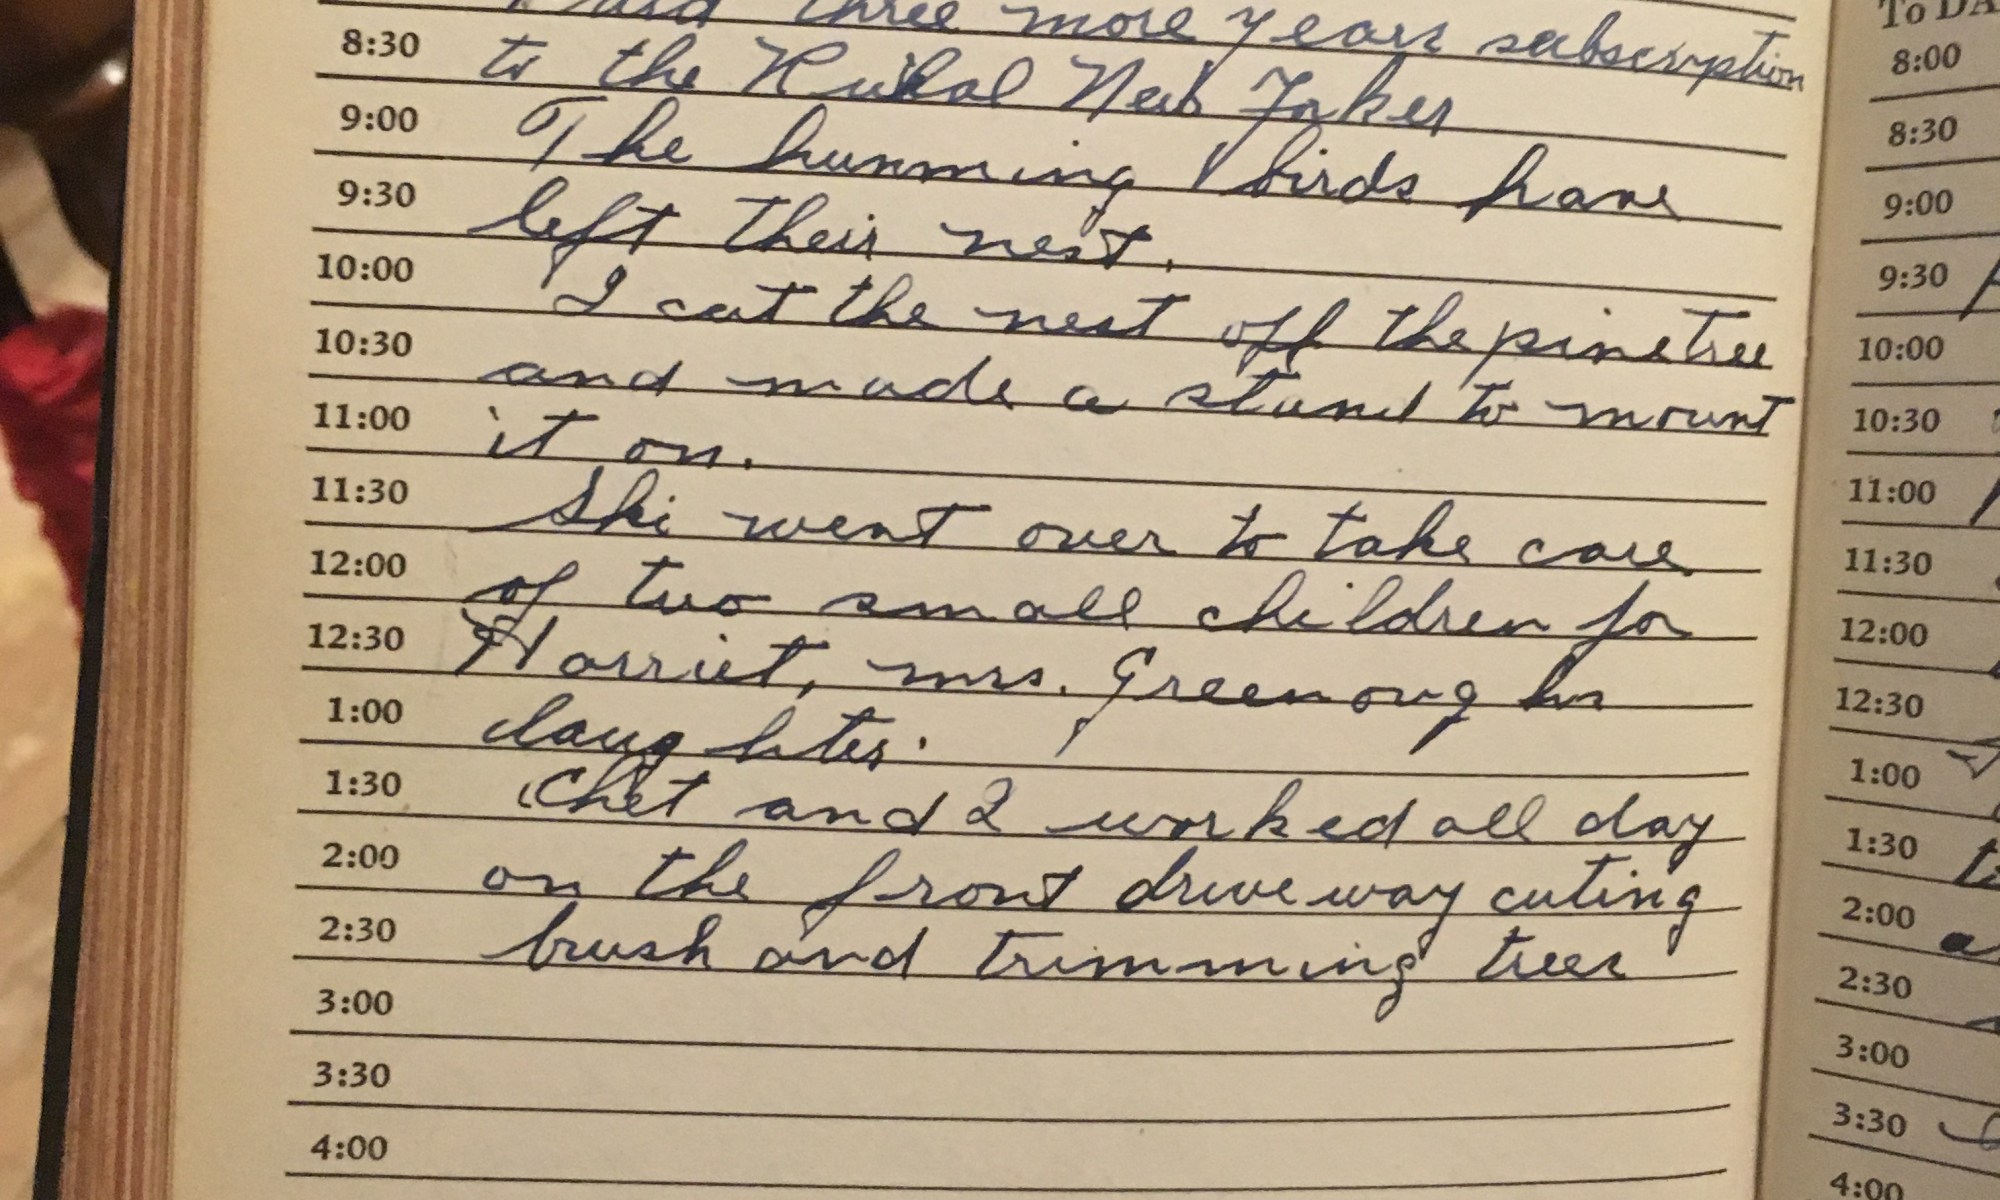 three more years subscryption
8:30 to the Rural New Yorker
9:00 The humming birds have
9:30 left their nest.
10:00 I cut the nest off the pine tree
10:30 and made a stand to mount
11:00 it on.
11:30 Ski went over to take care
12:00 of two small children for
12:30 Harriet, mrs. Greenoughs
1:00 daughter.
1:30 Chet and I worked all day
2:00 on the front driveway cuting
2:30 brush and trimming trees
3:00
3:30
4:00
8:00
8:30
9:00
9:30
10:00
10:30
11:00
11:30
12:00
12:30
1:00
1:30
2:00
2:30
3:00
3:30
4:00